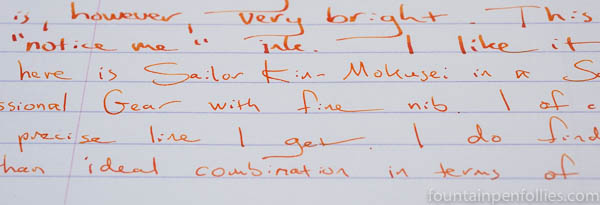 is, however, very bright. This
"notice me" ink. I like it
here is Sailor Kin-Mokusei in a Sa
ssional Gear with fine nib. I of c
precise line I get. I do find
han ideal combination in terms of
fountainpenfollies.com